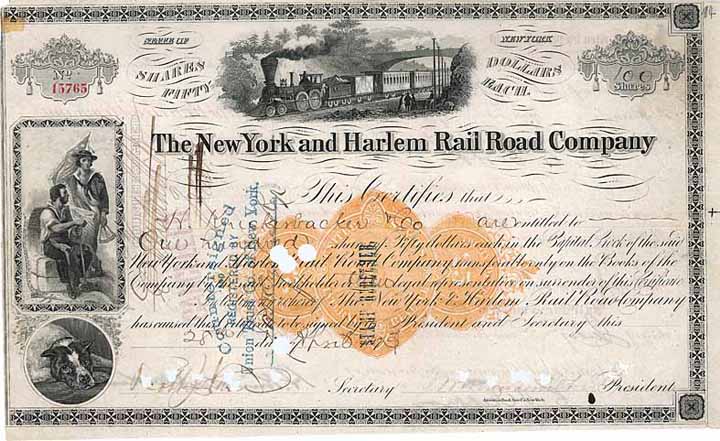 STATE OF
NEW YORK
No.
15765
SHARES
FIFTY
DOLLARS
EACH.
100
Shares
The New York and Harlem Rail Road Company
This Certifies that
are entitled to
One Hundred shares of Fifty dollars each, in the Capital Stock of the said
New York and Harlem Rail Road Company transferable only on the Books of the
Company by the Stockholder or legal representation on surrender of this Certificate
The New York & Harlem Rail Road Company
has caused this to be signed by President and Secretary this
28 day of April
Secretary
President
Countersigned
REGISTERED BY
Union Trust Co. of New York.